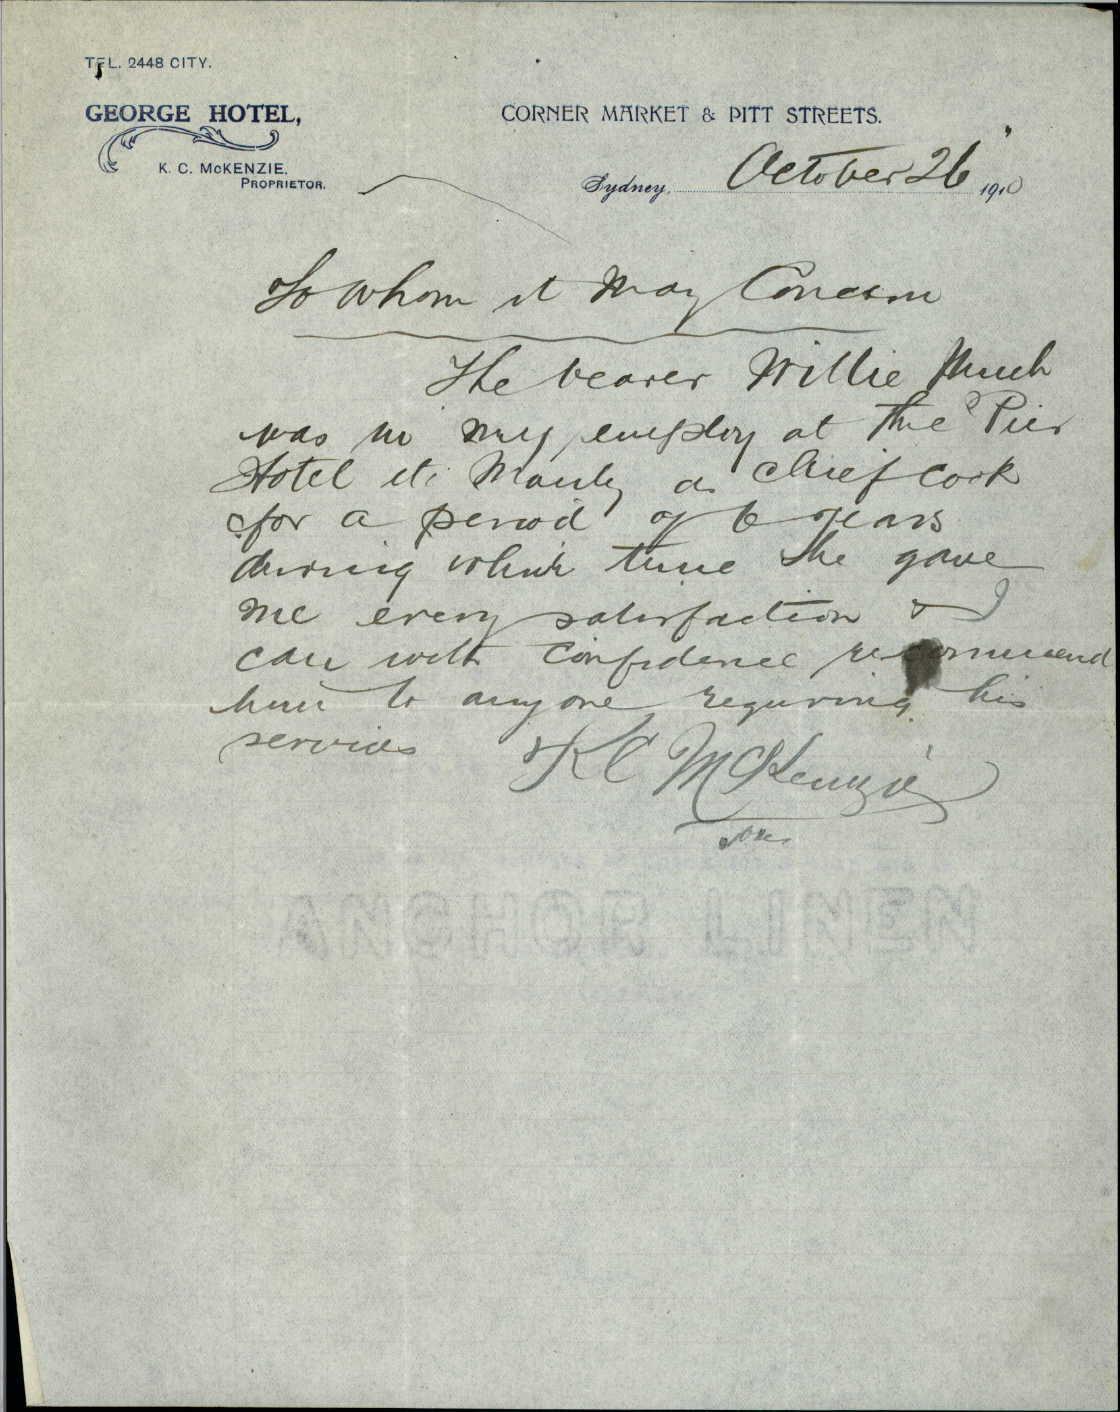 TEL. 2448 CITY.
GEORGE HOTEL,
CORNER MARKET & PITT STREETS.
K. C. McKENZIE.
PROPRIETOR.
Sydney, October 26 1910
To Whom it May Concern
The bearer Willie
was in my employ at the Pier
Hotel at Manly as chief cook
for a period of 6 years
during which time he gave
me every satisfaction & I
can with confidence recommend
him to anyone requiring his
services K C McKenzie
ANCHOR LINEN